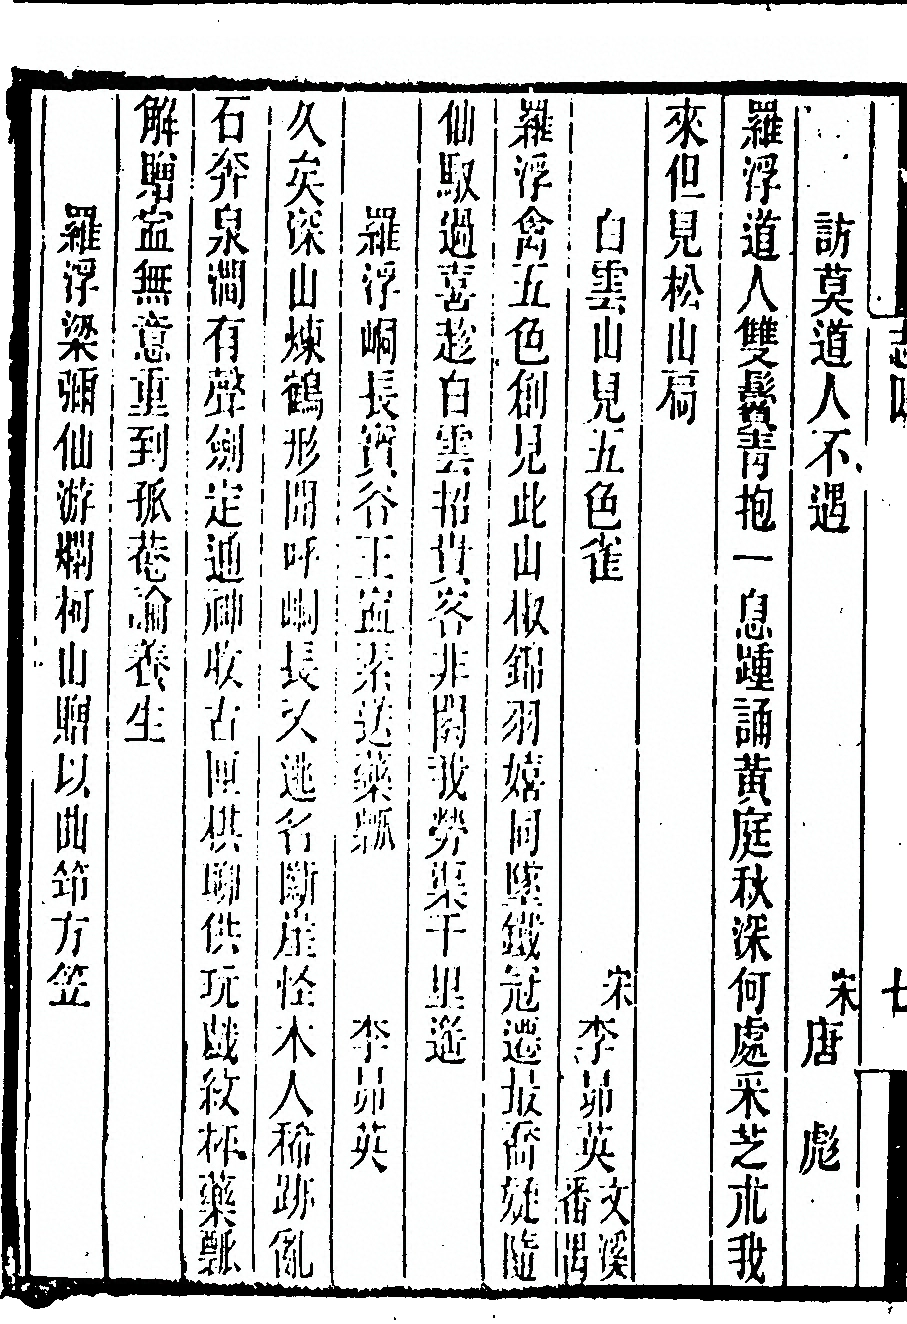 志四
七
訪莫道人不遇 宋唐彪
羅浮道人雙鬢青抱一息踵誦黃庭秋深何處采芝朮我
來但見松山扃
白雲山見五色雀 宋李昴英文溪番禺
羅浮禽五色創見此山椒錦羽嬉同墜鐵冠還最喬疑隨
仙馭過喜趁白雲招貴客非關我勞渠千里遙
羅浮峒長寶谷王寍素送藥瓢 李昴英
久矣深山煉鶴形閒呼峒長又逃名斷崖怪木人稀跡亂
石奔泉澗有聲劍定通神收古匣棋聊供玩戲紋枰藥瓢
解贈寍無意重到孤菴論養生
羅浮梁彌仙游爛柯山贈以曲笻方笠